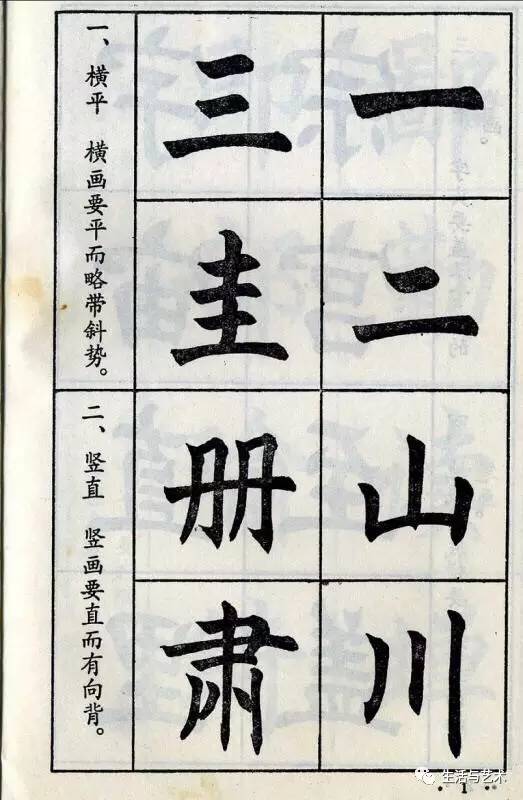 一
二
山
川
三
圭
册
肃
一、横平 横画要平而略带斜势。
二、竖直 竖画要直而有向背。
· 1 ·
生活与艺术